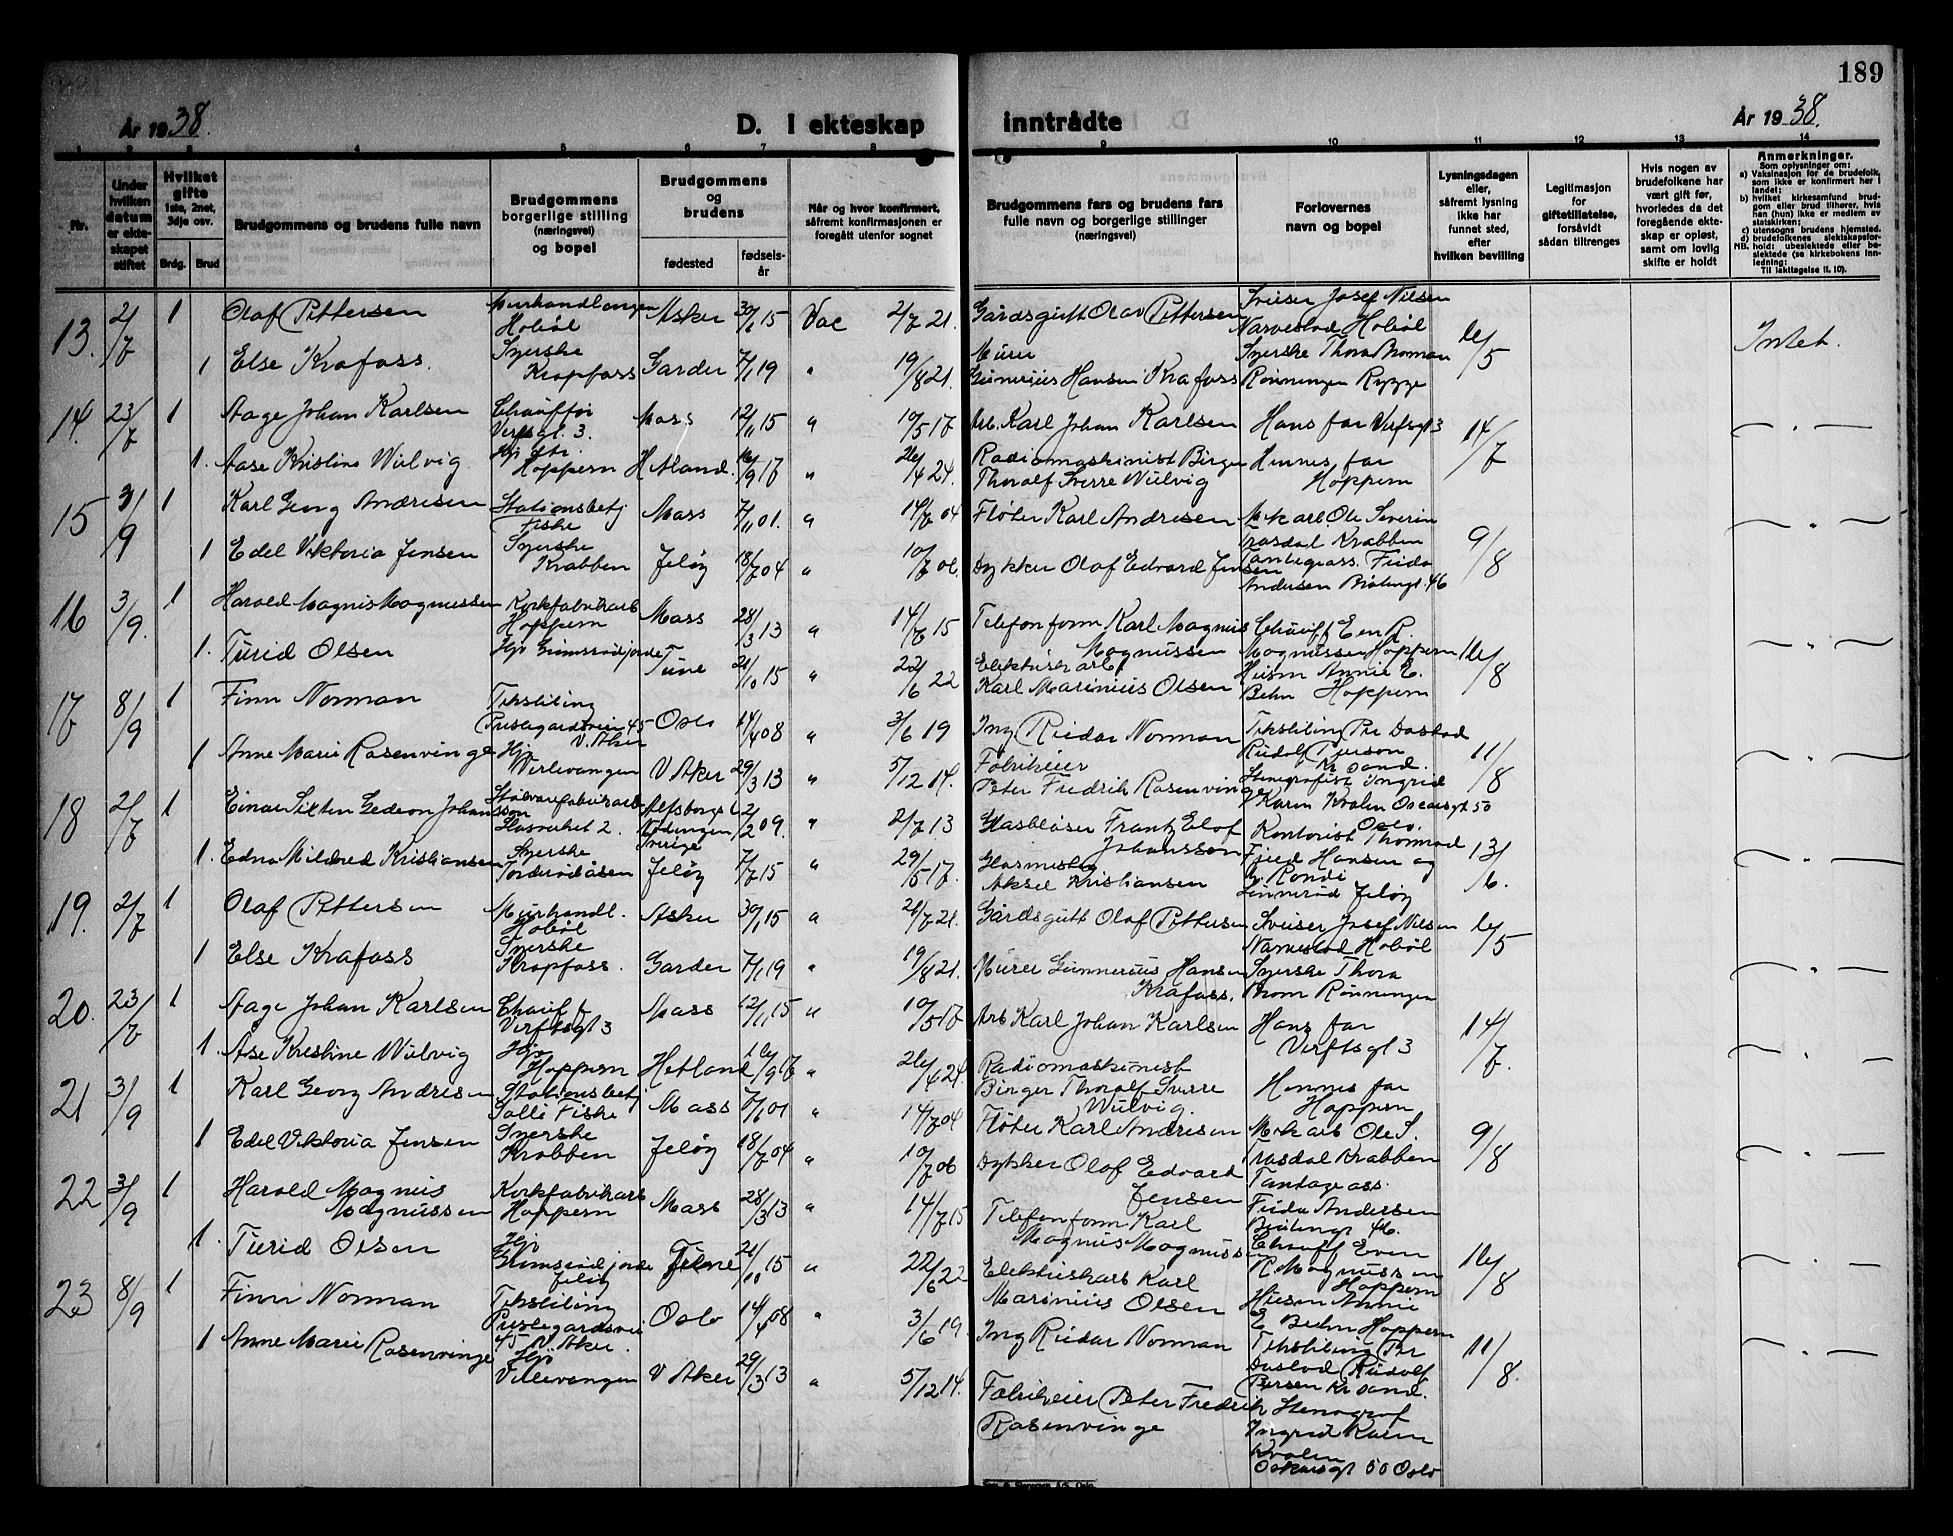 189
År 1938.
D. I ekteskap inntrådte
År 1938.
1 2 3 4 5 6 7 8 9 10 11 12 13 14
Nr.
Under hvilken datum er ekteskapet stiftet
Hvilket gifte 1ste, 2net, 3dje osv.
Brdg. Brud
Brudgommens og brudens fulle navn
Brudgommens borgerlige stilling (næringsvei) og bopel
Brudgommens og brudens
fødested
fødselsår
Når og hvor konfirmert, såfremt konfirmasjonen er foregått utenfor sognet
Brudgommens fars og brudens fars fulle navn og borgerlige stillinger (næringsvei)
Forlovernes navn og bopel
Lysningsdagen eller, såfremt lysning ikke har funnet sted, efter hvilken bevilling
Legitimasjon for giftetillatelse, forsåvidt sådan tiltrenges
Hvis nogen av brudefolkene har vært gift før, hvorledes da det foregående ekteskap er opløst, samt om lovlig skifte er holdt
Anmerkninger.
Som oplysninger om:
a) Vaksinasjon for de brudefolk, som ikke er konfirmert her i landet;
b) hvilket kirkesamfund brudgom eller brud tilhører, hvis han (hun) ikke er medlem av statskirken;
c) utensogns brudens hjemsted.
d) brudefolkenes slektskapsforhold: ubeslektede eller beslektede (se kirkebokens innledning;
NB.
Til iakttagelse ll. 10).
13. 2/7 1 Olaf Pettersen Hobøl Asker 30/1 15 Vac 2/7 21. Gårdsgutt Olav Pettersen Sveiser Josef Nilsen Hobøl
1 Else Krafoss. Syerske Kropfoss Garder 7/1 19 " 19/8 21. Murer Gunerius Hansen Krafoss Syerske Thora Rønningen Rygge Intet.
14. 23/7 1 Aage Johan Karlsen Chauffør Verfsgt. 3. Moss 12/11 15 " 10/5 17 Arb. Karl Johan Karlsen Hans far Verfsgt 3 14/7
1. Aase Kristine Wulvig Hoppern Hetland. 16/9 17 " 26/4 24. Radiomaskinist Birger Thoralf Sverre Wulvig Hennes far Hoppern
15 3/9 1 Karl Georg Andresen Stationsbetj Fiske Moss 7/11 01. " 14/7 04 Fløter Karl Andresen Mek arb Ole Severin Krabben 9/8
1 Edel Viktoria Jensen Syerske Krabben Jeløy 18/7 04 " 10/7 06. Dykker Olaf Edvard Jensen Frida Andersen 46
16 3/9. 1 Harald Magnus Magnussen Korkfabrikarb Hoppern Moss 28/3 13 " 14/7 15 Telefonform Karl Magnus Magnussen Chauff Even R. Magnussen Hoppern 16/8
1. Turid Olsen Hjv Grimsrødjordet Tune 21/10 15 " 22/6 22 Elektrikarb Karl Marinius Olsen Husm Annie E. Behn Hoppern
17 8/9 1 Finn Norman Prestegardsvei 45 V. Aker Oslo 14/4 08 " 3/6 19 Ing Reidar Norman Rudolf Kr sand. 11/8
1 Anne Marie Rosenvinge Hjv V Aker 29/3 13 " 5/12 14. Fabrikeier Peter Fredrik Rosenvinge Stenografist Ingrid Karin Kvalen Oscarsgt 50 Oslo.
18 2/7 1 Einar Sixten Gedeon Johansson 2. Sverige 2/2 09. " 2/7 13 Glasblåser Frantz Elof Johansson Kontorist Thormod Fjeld Hansen og 13/6.
1. Edna Mildred Kristiansen Syerske Jeløy 7/7 15 " 29/5 17. Glasmester Aksel Kristiansen Jeløy
19. 2/7 1 Olaf Pettersen Hobøl Asker 30/1 15 " 2/7 21. Gårdsgutt Olaf Pettersen Sveiser Josef Nilsen Hobøl
1 Else Krafoss Syerske Kropfoss. Garder 7/1 19 " 19/8 21. Murer Gunnerius Hansen Krafoss. Syerske Thora Rønningen
20. 23/7 1 Aage Johan Karlsen Chauff Verftsgt 3 Moss 12/11 15 " 10/5 17 Arb Karl Johan Karlsen Hans far Verftsgt 3 14/7.
1 Åse Kristine Wulvig Hjv Hoppern Hetland 16/9 17 " 26/4 24. Radiomaskinist Birger Thoralf Sverre Wulvig. Hennes far Hoppern
21 3/9 1 Karl Georg Andresen Stationsbetj Solli Fiske Moss " 14/7 04 Fløter Karl Andresen Mek arb Ole S. Krabben 9/8
1 Edel Viktoria Jensen Syerske Krabben Jeløy 18/7 04 " 10/7 06 Dykker Olof Edvard Jensen Frida Andersen 46.
22 3/9 1 Harald Magnus Magnussen Korkfabrikarb Hoppern Moss 28/3 13 " 14/7 15 Telefonform Karl Magnus Magnussen Chauff Even R. Magnussen Hoppern 16/8
1. Turid Olsen Hjv Grimsrødjordet Jeløy 21/10 15 " 22/6 22 Elektrikarb Karl Marinius Olsen Husm Annie E Behn Hoppern
23 8/9 1 Finn Norman Prestegardsvei 45 V. Aker. Oslo 14/4 08 " 3/6 19. Ing Reidar Norman Rudolf Kr sand. 11/8.
1 Anne Marie Rosenvinge Hjv V Aker 29/3 13 " 5/12 14. Fabrikeier Peter Fredrik Rosenvinge Stenograf Ingrid Karin Kvalen Oskarsgt 50 Oslo